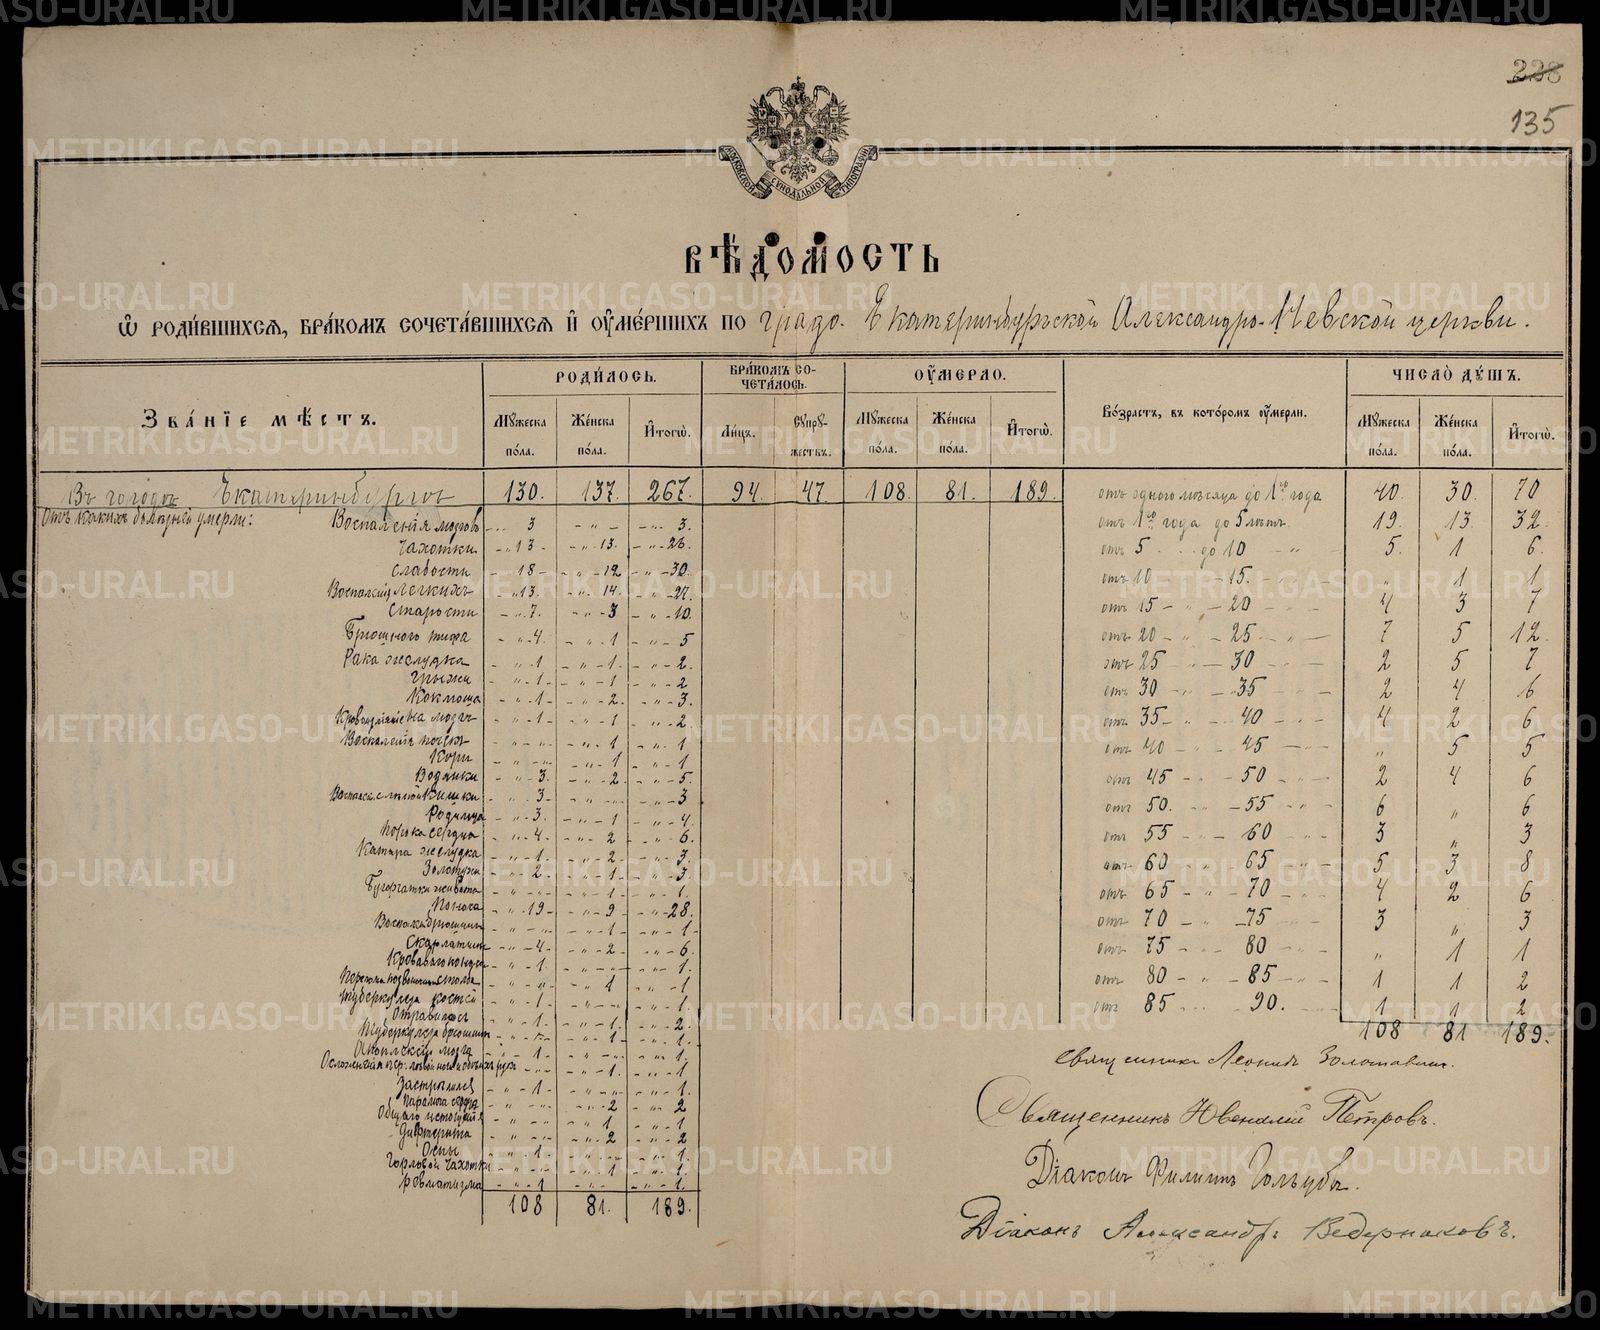 228
135
МОСКОВСКОЙ СѴНОДАЛЬНОЙ ТИПОГРАФІИ
ВѢДОМОСТЬ
Ѡ РОДИ́ВШИХСѦ, БРА́КОМЪ СОЧЕТА́ВШИХСѦ И҆ ОУ҆МЕ́РШИХЪ ПО градо-Екатеринбургской Александро-Невской церкви.
ЗВА́НІЕ МѢ́СТЪ. РОДИ́ЛОСЬ. БРА́КОМЪ СО-ЧЕТА́ЛОСЬ. ОУ҆́МЕРЛО. Во́зрастъ, въ кото́ромъ оу҆мерли. ЧИСЛО̀ ДꙊ́ШЪ.
Мꙋ́жеска по́ла. Же́нска по́ла. И҆того̀. Ли́цъ. Сꙋпрꙋ́-жествъ. Мꙋ́жеска по́ла. Же́нска по́ла. И҆того̀. Мꙋ́жеска по́ла. Же́нска по́ла. И҆того̀.
Въ городѣ Екатеринбургѣ 130. 137. 267. 94. 47. 108. 81. 189. отъ одного мѣсяца до 1го года 40. 30. 70
Отъ какихъ болѣзней умерли: Воспаленія мозговъ 3 - „ - 3.
Чахотки 13 - 13. - 26.
Слабости 18 - 12 - 30.
Воспаленія легкихъ 13. - 14. - 27.
Старости 7. - 3 - 10.
Брюшного тифа 4. - 1 - 5
Рака желудка 1 - 1. - 2.
Грыжи 1 - 1 - 2
Коклюша 1 - 2. - 3.
на мозгъ 1 - 1 - 2
Воспаленія почекъ - „ - 1 - 1
Кори - „ - 1 - 1
Водянки 3. - 2 - 5.
кишки 3. - „ - 3
Родимца 3. - 1 - 4.
Порока сердца 4. - 2 - 6.
Катара желудка 1. - 2. - 3.
Золотухи 2. - 1. - 3
Бугорчатки живота - „ - 1. - 1.
Поноса 19 - 9 - 28.
- „ - 1 - 1.
Скарлатины 4. - 2 - 6.
Кроваваго поноса 1. - „ - 1.
столба - „ - 1 - 1
Туберкулеза костей 1 - „ - 1.
Отравилась 1 - 1. - 2.
Туберкулеза брюшины - 1 - 1.
Апоплексіи мозга 1. - „ - 1.
1. - 1.
Застрѣлился 1 - „ - 1.
Паралича сердца - „ - 2 - 2
Общаго истощенія - „ - 1 - 1
Дифтерита - „ - 2 - 2
Оспы 1. - „ - 1.
Горловой чахотки - „ - 1 - 1.
Ревматизма 1 - „ - 1.
108 81. 189.
отъ 1го года до 5 лѣтъ. 19. 13. 32.
отъ 5 до 10 - „ - 5. 1 6.
отъ 10 - 15. „ 1 1
отъ 15 - „ - 20 4 3 7
отъ 20 - „ - 25 - „ - 7 5 12.
отъ 25 - „ - 30 2 5 7
отъ 30 - „ - 35 2 4 6
отъ 35 - „ - 40 4 2 6
отъ 40 - „ - 45 „ 5 5
отъ 45 - „ - 50 2 4 6
отъ 50. - 55 6 „ 6
отъ 55 - „ - 60 3 „ 3
отъ 60 65 5 3 8
отъ 65 - „ - 70 4 2 6
отъ 70 - „ - 75 3 „ 3
отъ 75 - 80 „ 1 1
отъ 80 - „ - 85 1 1 2
отъ 85 - 90. 1 1 2
108 81 189.
Священникъ Леонидъ
Священникъ Ювеналій Петровъ.
Діаконъ Филиппъ Голубь.
Діаконъ Александръ Ведерниковъ.
METRIKI.GASO-URAL.RU